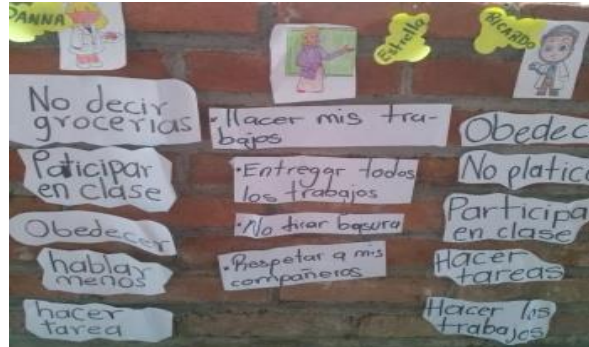 DANNA
No decir
grocerias
Paticipar
en clase
Obedecer
hablar
menos
hacer
tarea
Estrella
• Hacer mis tra-
bajos
• Entregar todos
los trabajos
• No tirar basura
• Respetar a mis
compañeros
RICARDO
Obedec
No platica
Participa
en clase
Hacer
tareas
Hacer los
trabajos